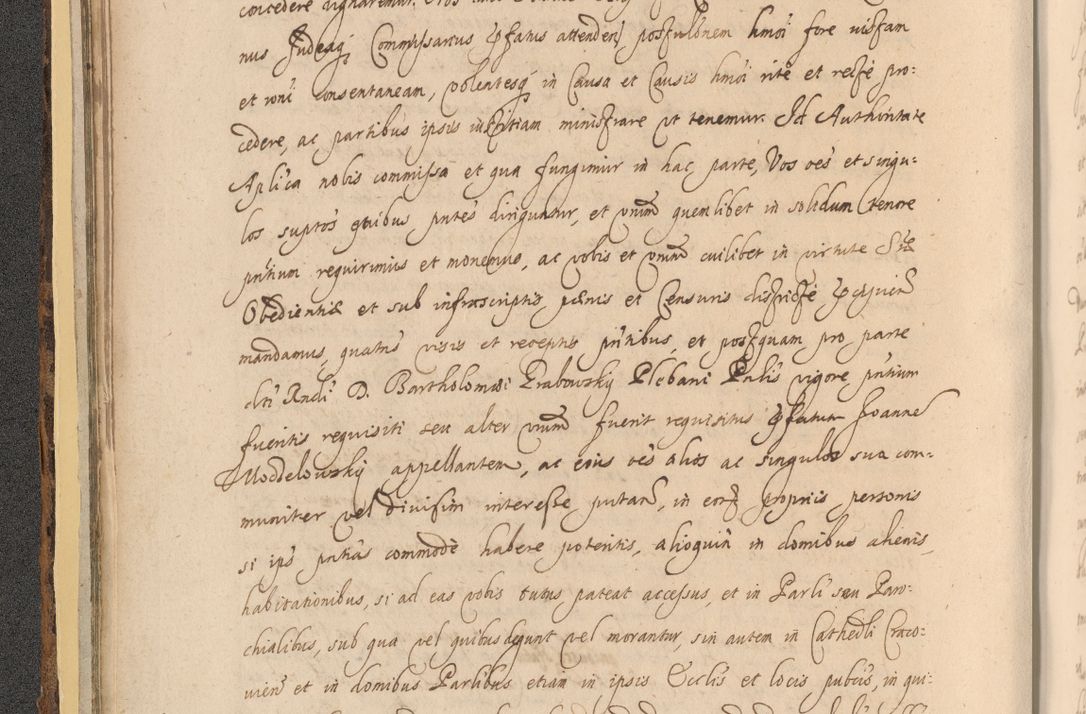 concedere dignaremur. Nos
nus Judexq Commissarius pfatus attenden posťulonem hmoi fore uistam
et roni consentaneam, volentesq in Causa et Causis hmoi rite et recte pro:
cedere, ac partibus ipsis iustitiam ministrare ut tenemur. Id Authoritate
Aplica nobis commissa et qua fungimur in hac parte, Vos oes et singu:
los suptos quibus pntes diriguntur, et vnum quemlibet in solidum tenore
pntium requirimus et monemus, ac vobis et vnum cuilibet in virtute Ste
Obedientiæ et sub infrascriptis pænis et Censuris districte pcipien
mandamus, quatus visis et receptis pntibus, et postquam pro parte
dti Rndi D. Bartholomæi Grabowsky Plebani Pnlis vigore pntium
fueritis requisiti seu alter vnum fuerit requisitus pfatum Joanne
Modelowsky appellantem, ac eius oes alios ac singulos sua com:
muniter vel diuisim interesse putan, in eor propriis personis
si ips pntias commodè habere poteritis, alioquin in domibus alienis,
habitationibus, si ad eas vobis tutus pateat accessus, et in Parli seu Paro:
chialibus, sub qua vel quibus degunt vel morantur, sin autem in Cathedli Craco:
uien et in domibus Parlibus etiam in ipsis Ecclis et locis publis, in qui: